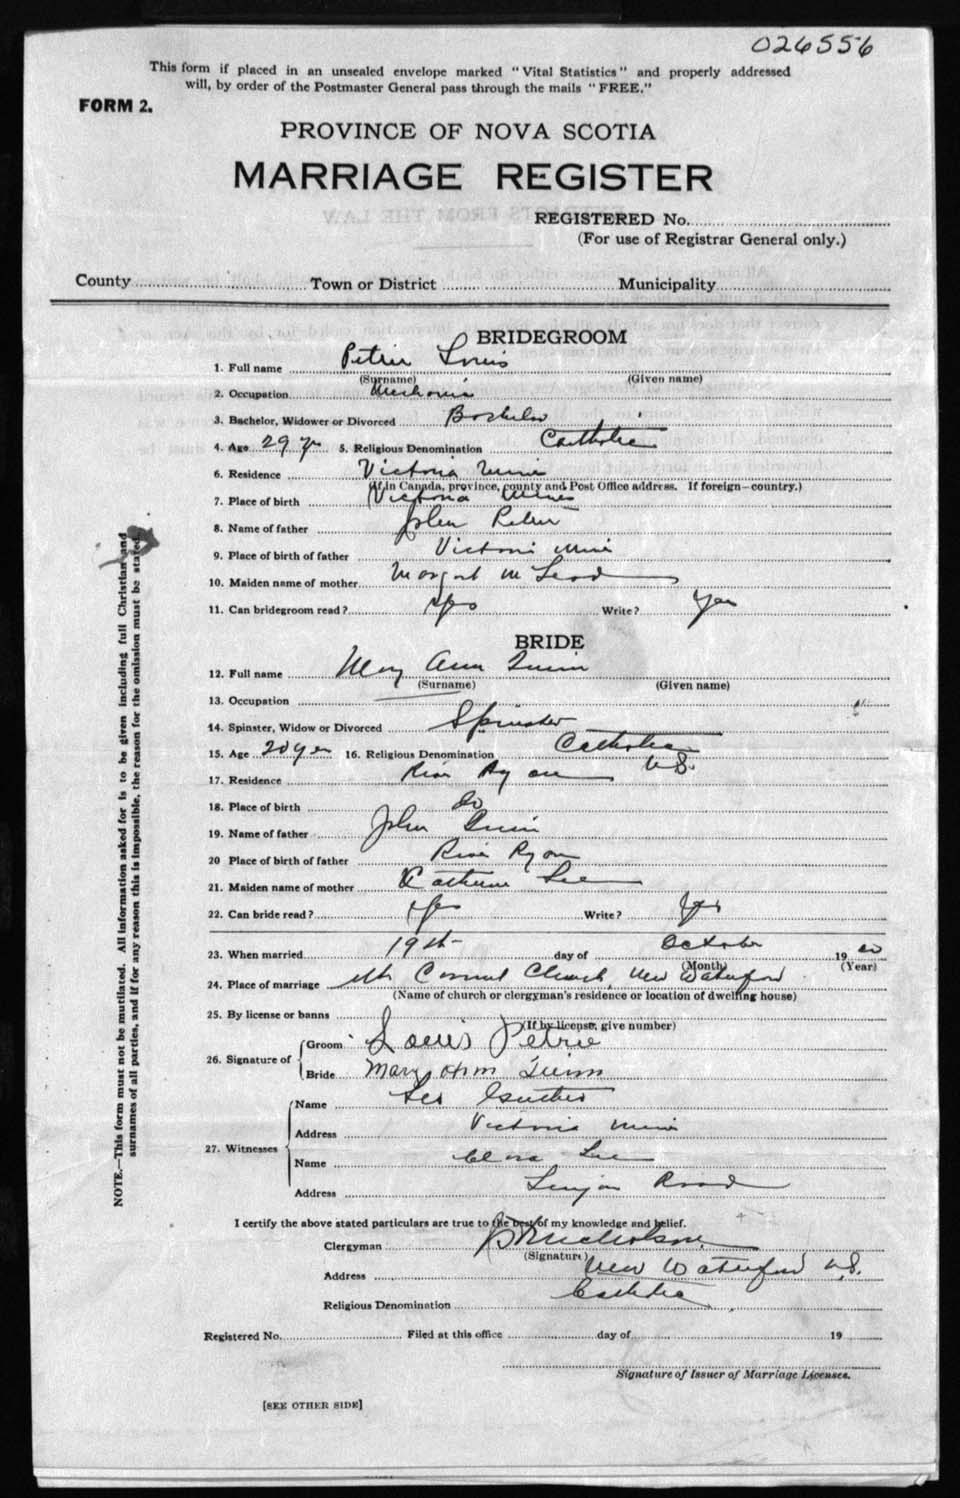 026556
This form if placed in an unsealed envelope marked "Vital Statistics" and properly addressed
will, by order of the Postmaster General pass through the mails "FREE."
FORM 2.
PROVINCE OF NOVA SCOTIA
MARRIAGE REGISTER
REGISTERED No.
(For use of Registrar General only.)
County Town or District Municipality
BRIDEGROOM
1. Full name Petrie Louis
(Surname) (Given name)
2. Occupation
3. Bachelor, Widower or Divorced Bachelor
4. Age 29 yr 5. Religious Denomination Catholic
6. Residence Victoria Mines
(If in Canada, province, county and Post Office address. If foreign—country.)
7. Place of birth Victoria Mines
8. Name of father John Petrie
9. Place of birth of father Victoria Mines
10. Maiden name of mother Margaret McLeod
11. Can bridegroom read? Yes Write? Yes
BRIDE
12. Full name Mary Ann Quinn
(Surname) (Given name)
13. Occupation
14. Spinster, Widow or Divorced Spinster
15. Age 20 yrs 16. Religious Denomination Catholic
17. Residence River Ryan N.S.
18. Place of birth Do
19. Name of father John Quinn
20 Place of birth of father River Ryan
21. Maiden name of mother Catherine Lee
22. Can bride read? Yes Write? Yes
23. When married 19th day of October 1920
(Month) (Year)
24. Place of marriage Mt Carmel Church, New Waterford
(Name of church or clergyman's residence or location of dwelling house)
25. By license or banns
(If by license, give number)
26. Signature of Groom Louis Petrie
Bride Mary Ann Quinn
27. Witnesses
Name Leo
Address Victoria Mines
Name Clara Lee
Address Lingan Road
I certify the above stated particulars are true to the best of my knowledge and belief.
Clergyman Nicholson
(Signature)
Address New Waterford N.S.
Religious Denomination Catholic
Registered No. Filed at this office day of 19
Signature of Issuer of Marriage Licenses.
[SEE OTHER SIDE]
NOTE.—This form must not be mutilated. All information asked for is to be given including full Christian and
surnames of all parties, and if for any reason this is impossible, the reason for the omission must be stated.